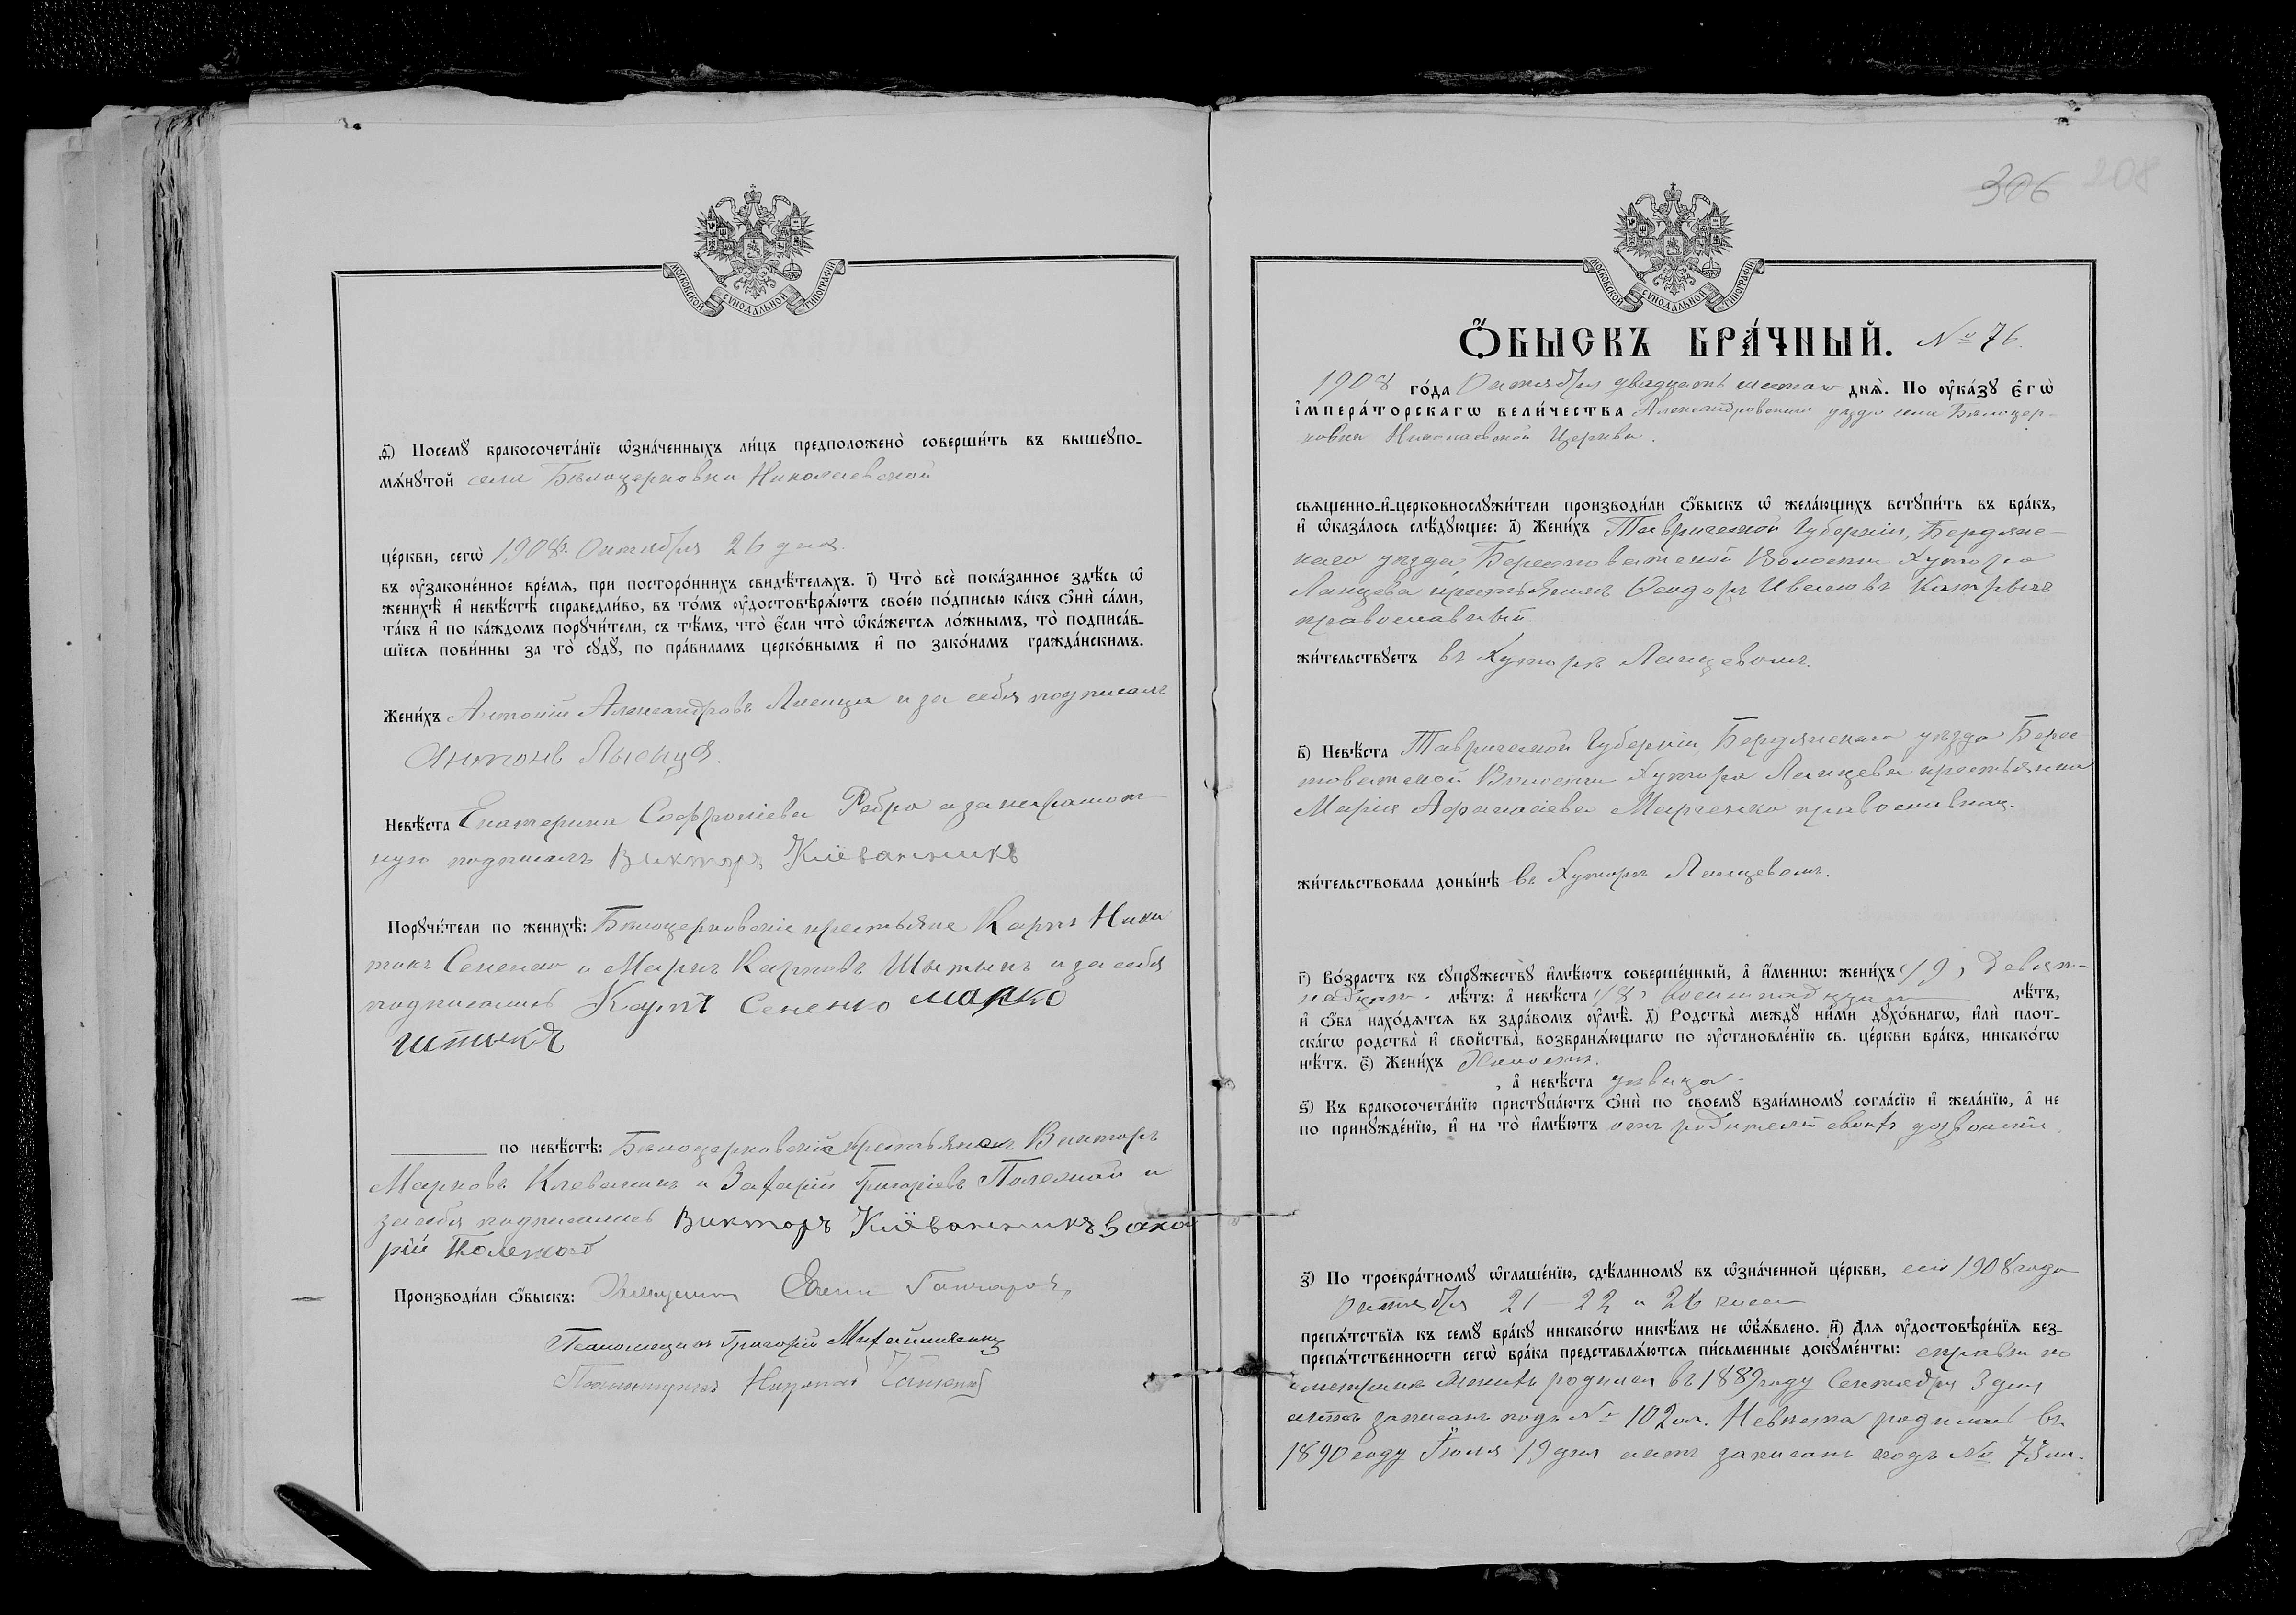 МОСКОВСКОЙ СѴНОДАЛЬНОЙ ТИПОГРАФІИ
ѳ҃) Посемꙋ бракосочета́нїе ѡзна́ченныхъ ли́цъ предположено̀ соверши́ть въ вышеꙋпо-
мѧ́нꙋтой села Бѣлоцерковки Николаевской
це́ркви, сегѡ̀ 1908 г. Октября 26 дня.
въ ᲂу҆зако́ненное вре́мѧ, при посторо́ннихъ свидѣ́телѧхъ. і҃) Что̀ всѐ пока́занное здѣ́сь ѡ҆
женихѣ̀ и҆ невѣ́стѣ справедли́во, въ то́мъ ᲂу҆достовѣрѧ́ютъ свое́ю по́дписью ка́къ ѻ҆нѝ са́ми,
та́къ и҆ по ка́ждомъ порꙋчи́тели, съ тѣ́мъ, что̀ є҆́сли что̀ ѡ҆ка́жетсѧ ло́жнымъ, то̀ подписа́в-
шїесѧ пови́нны за то̀ сꙋдꙋ̀, по пра́виламъ церко́внымъ и҆ по зако́намъ гражда́нскимъ.
Жени́хъ Антоній Александровъ Лисица и за себя подписался
Антонъ Лысиця.
Невѣ́ста Екатерина Софроніева Ребро а за неграмот-
ную подписалъ Викторъ Клёванникъ
Порꙋчи́тели по женихѣ̀: Бѣлоцерковскіе крестьяне Карпъ Ники
тинъ Сененко и Маркъ Карповъ Штыкъ и за себя
подписались Карпъ Сененко Марко
Штыкя
по невѣ́стѣ: Бѣлоцерковскіе крестьяне Викторъ
Марковъ Клеванникъ и Захарій Григоріевъ Полежай и
за себя подписались Викторъ Клёванникъ Заха
рій Полежай
Производи́ли ѻ҆́быскъ: Священникъ Евгеній Гончаровъ,
Псаломщикъ Григорій Михайличенко
306 208
МОСКОВСКОЙ СѴНОДАЛЬНОЙ ТИПОГРАФІИ
Ѻ҆́БЫСКЪ БРА́ЧНЫЙ. № 76.
1908 го́да Октября двадцать шестаго днѧ̀. По ᲂу҆ка́зꙋ є҆гѡ̀
і҆мпера́торскагѡ вели́чества Александровскаго уѣзда села Бѣлоцер-
ковки Николаевской Церкви.
свѧщенно-и҆-церковнослꙋжи́тели производи́ли ѻ҆́быскъ ѡ҆ жела́ющихъ встꙋпи́ть въ бра́къ,
и҆ ѡ҆каза́лось слѣ́дꙋющее: а҃) Жени́хъ Таврической Губерніи, Бердянс-
каго уѣзда, Берестоватской Волости Хутора
Ланцева крестьянинъ Ѳеодоръ Ивановъ
православный.
жи́тельствꙋетъ въ Хуторѣ Ланцевомъ.
в҃) Невѣ́ста Таврической Губерніи Бердянскаго уѣзда Берес
товатской Волости Хутора Ланцева крестьянка
Марія Афанасіева Марченко православная.
жи́тельствовала доны́нѣ въ Хуторѣ Ланцевомъ.
г҃) Во́зрастъ къ сꙋпрꙋ́жествꙋ и҆мѣ́ютъ соверше́нный, а҆ и҆́менно: жени́хъ 19, девят-
надцать лѣ́тъ: а҆ невѣ́ста 18, восемнадцать лѣ́тъ,
и҆ ѻ҆́ба нахо́дѧтсѧ въ здра́вомъ ᲂу҆мѣ̀. д҃) Родства̀ междꙋ̀ ни́ми дꙋхо́внагѡ, и҆лѝ плот-
ска́гѡ родства̀ и҆ свойства̀, возбранѧ́ющагѡ по ᲂу҆становле́нїю св. це́ркви бра́къ, никако́гѡ
нѣ́тъ. є҃) Жени́хъ Холостъ.
, а҆ невѣ́ста дѣвица.
ѕ҃) Къ бракосочета́нїю пристꙋпа́ютъ ѻ҆нѝ по своемꙋ̀ взаи́мномꙋ согла́сїю и҆ жела́нїю, а҆ не
по принꙋжде́нїю, и҆ на то̀ и҆мѣ́ютъ отъ родителей своихъ дозволеніе.
з҃) По троекра́тномꙋ ѡ҆глаше́нїю, сдѣ́ланномꙋ въ ѡзна́ченной це́ркви, сего 1908 года
Октября 21 – 22 и 26 чиселъ
препѧ́тствїѧ къ семꙋ̀ бра́кꙋ никако́гѡ никѣ́мъ не ѡ҆б̾ѧ́влено. и҃) Длѧ ᲂу҆достовѣре́нїѧ без-
препѧ́тственности сегѡ̀ бра́ка представлѧ́ютсѧ пи́сьменные докꙋме́нты: справки по
метрикѣ Женихъ родился въ 1889 году Сентября 3 дня
актъ записанъ подъ № 102 м. Невѣста родилась въ
1890 году Іюля 19 дня актъ записанъ подъ № 73 ж.